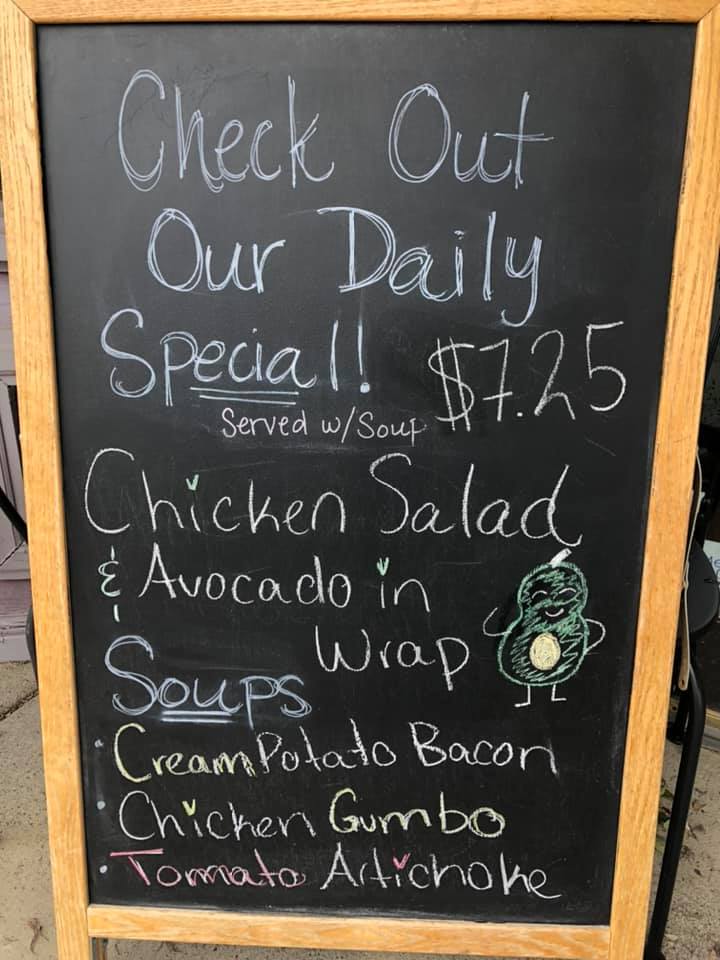 Check Out
Our Daily
Special! $7.25
Served w/Soup
Chicken Salad
& Avocado in
Wrap
Soups
• Cream Potato Bacon
• Chicken Gumbo
• Tomato Artichoke